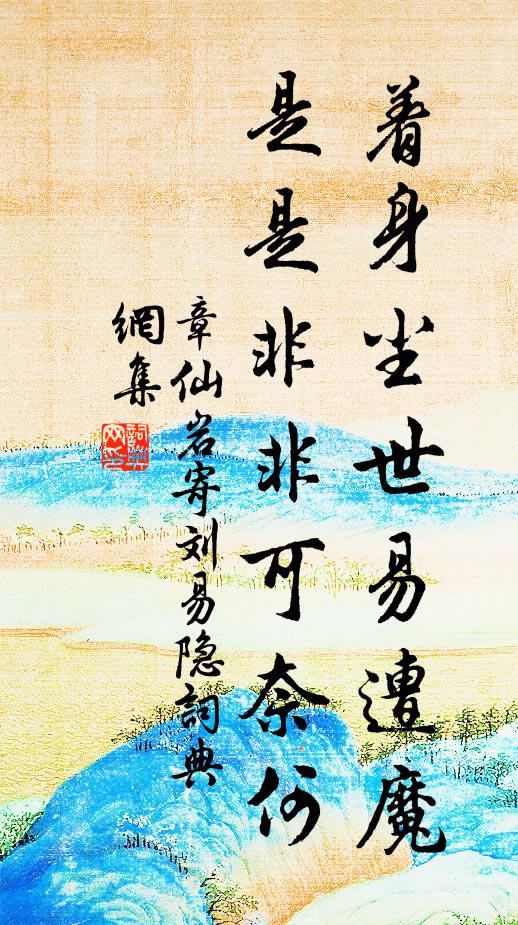 着身尘世易遭魔
是是非非可奈何
章仙岩寄刘易隐詞典
網集